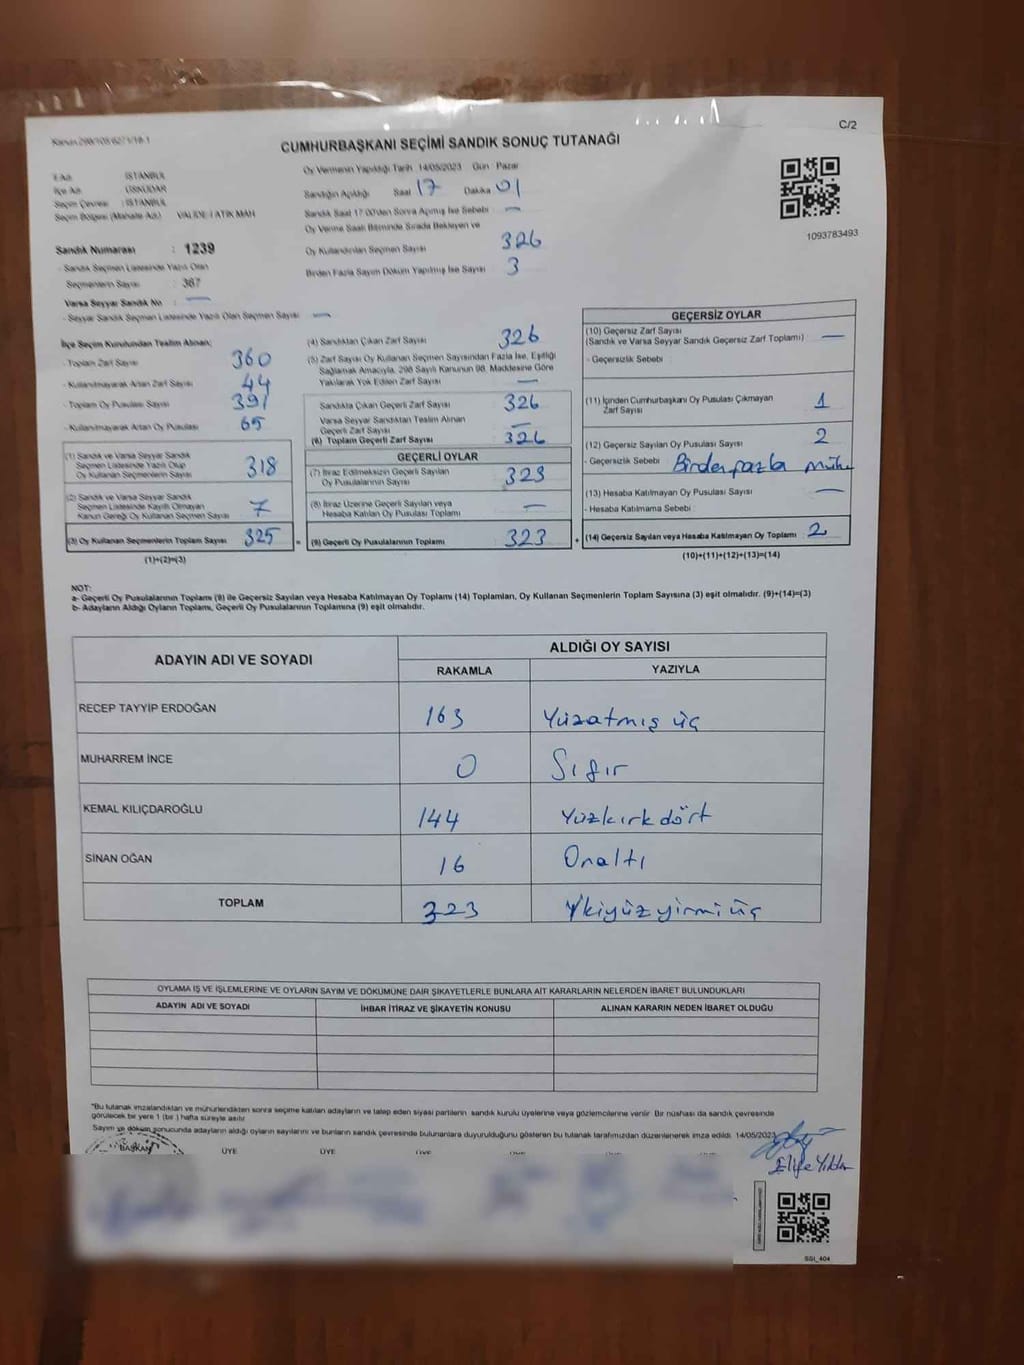 Kanun:298/105/6271/18-1
C/2
CUMHURBAŞKANI SEÇİMİ SANDIK SONUÇ TUTANAĞI
İl Adı : İSTANBUL
İlçe Adı : ÜSKÜDAR
Seçim Çevresi : İSTANBUL
Seçim Bölgesi (Mahalle Adı) VALİDE-İ ATİK MAH
Sandık Numarası : 1239
- Sandık Seçmen Listesinde Yazılı Olan
Seçmenlerin Sayısı : 367
Varsa Seyyar Sandık No : —
- Seyyar Sandık Seçmen Listesinde Yazılı Olan Seçmen Sayısı —
Oy Vermenin Yapıldığı Tarih 14/05/2023 Gün Pazar
Sandığın Açıldığı Saat 17 Dakika 01
Sandık Saat 17.00'den Sonra Açılmış İse Sebebi : —
Oy Verme Saati Bitiminde Sırada Bekleyen ve
Oy Kullandırılan Seçmen Sayısı 326
Birden Fazla Sayım Döküm Yapılmış İse Sayısı 3
1093783493
İlçe Seçim Kurulundan Teslim Alınan;
- Toplam Zarf Sayısı 360
- Kullanılmayarak Artan Zarf Sayısı 44
- Toplam Oy Pusulası Sayısı 391
- Kullanılmayarak Artan Oy Pusulası 65
(1) Sandık ve Varsa Seyyar Sandık
Seçmen Listesinde Yazılı Olup
Oy Kullanan Seçmenlerin Sayısı 318
(2) Sandık ve Varsa Seyyar Sandık
Seçmen Listesinde Kayıtlı Olmayan
Kanun Gereği Oy Kullanan Seçmen Sayısı 7
(3) Oy Kullanan Seçmenlerin Toplam Sayısı 325
(1)+(2)=(3)
(4) Sandıktan Çıkan Zarf Sayısı 326
(5) Zarf Sayısı Oy Kullanan Seçmen Sayısından Fazla İse, Eşitliği
Sağlamak Amacıyla, 298 Sayılı Kanunun 98. Maddesine Göre
Yakılarak Yok Edilen Zarf Sayısı —
Sandıkta Çıkan Geçerli Zarf Sayısı 326
Varsa Seyyar Sandıktan Teslim Alınan
Geçerli Zarf Sayısı —
(6) Toplam Geçerli Zarf Sayısı 326
GEÇERLİ OYLAR
(7) İtiraz Edilmeksizin Geçerli Sayılan
Oy Pusulalarının Sayısı 323
(8) İtiraz Üzerine Geçerli Sayılan veya
Hesaba Katılan Oy Pusulası Toplamı —
= (9) Geçerli Oy Pusulalarının Toplamı 323
GEÇERSİZ OYLAR
(10) Geçersiz Zarf Sayısı
(Sandık ve Varsa Seyyar Sandık Geçersiz Zarf Toplamı) —
- Geçersizlik Sebebi
(11) İçinden Cumhurbaşkanı Oy Pusulası Çıkmayan
Zarf Sayısı 1
(12) Geçersiz Sayılan Oy Pusulası Sayısı 2
- Geçersizlik Sebebi Birden fazla mühü
(13) Hesaba Katılmayan Oy Pusulası Sayısı —
- Hesaba Katılmama Sebebi :
+ (14) Geçersiz Sayılan veya Hesaba Katılmayan Oy Toplamı : 2
(10)+(11)+(12)+(13)=(14)
NOT:
a- Geçerli Oy Pusulalarının Toplamı (9) ile Geçersiz Sayılan veya Hesaba Katılmayan Oy Toplamı (14) Toplamları, Oy Kullanan Seçmenlerin Toplam Sayısına (3) eşit olmalıdır. (9)+(14)=(3)
b- Adayların Aldığı Oyların Toplamı, Geçerli Oy Pusulalarının Toplamına (9) eşit olmalıdır.
ADAYIN ADI VE SOYADI ALDIĞI OY SAYISI
RAKAMLA YAZIYLA
RECEP TAYYİP ERDOĞAN 163 Yüzatmış üç
MUHARREM İNCE 0 Sıfır
KEMAL KILIÇDAROĞLU 144 Yüzkırkdört
SİNAN OĞAN 16 Onaltı
TOPLAM 323 İkiyüzyirmiüç
OYLAMA İŞ VE İŞLEMLERİNE VE OYLARIN SAYIM VE DÖKÜMÜNE DAİR ŞİKAYETLERLE BUNLARA AİT KARARLARIN NELERDEN İBARET BULUNDUKLARI
ADAYIN ADI VE SOYADI İHBAR İTİRAZ VE ŞİKAYETİN KONUSU ALINAN KARARIN NEDEN İBARET OLDUĞU
"Bu tutanak imzalandıktan ve mühürlendikten sonra seçime katılan adayların ve talep eden siyasi partilerin sandık kurulu üyelerine veya gözlemcilerine verilir. Bir nüshası da sandık çevresinde
görülecek bir yere 1 (bir) hafta süreyle asılır.
Sayım ve döküm sonucunda adayların aldığı oyların sayılarını ve bunların sandık çevresinde bulunanlara duyurulduğunu gösteren bu tutanak tarafımızdan düzenlenerek imza edildi. 14/05/2023
BAŞKAN ÜYE ÜYE
SSI_404